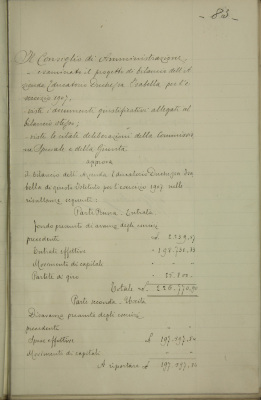 - 83 -
Il Consiglio di Amministrazione
- esaminato il progetto di bilancio dell'A-
zienda Educatorio Duchessa Isabella per l'e-
sercizio 1907,
- visti i documenti giustificativi allegati al
bilancio stesso;
- viste le citate deliberazioni della Commissio-
ne Speciale e della Giunta
approva
il bilancio dell'Azienda Educatorio Duchessa Isa-
bella di questo Istituto per l'esercizio 1907 nelle
risultanze seguenti:
Parte Prima - Entrata
Fondo presunto di avanzo degli esercizi
precedenti £
Entrate effettive
Movimento di capitali " "
Partite di giro
Totale £
Parte seconda - Uscita
Disavanzo presunto degli esercizi
precedenti " "
Spese effettive £
Movimento di capitali " "
A riportare £